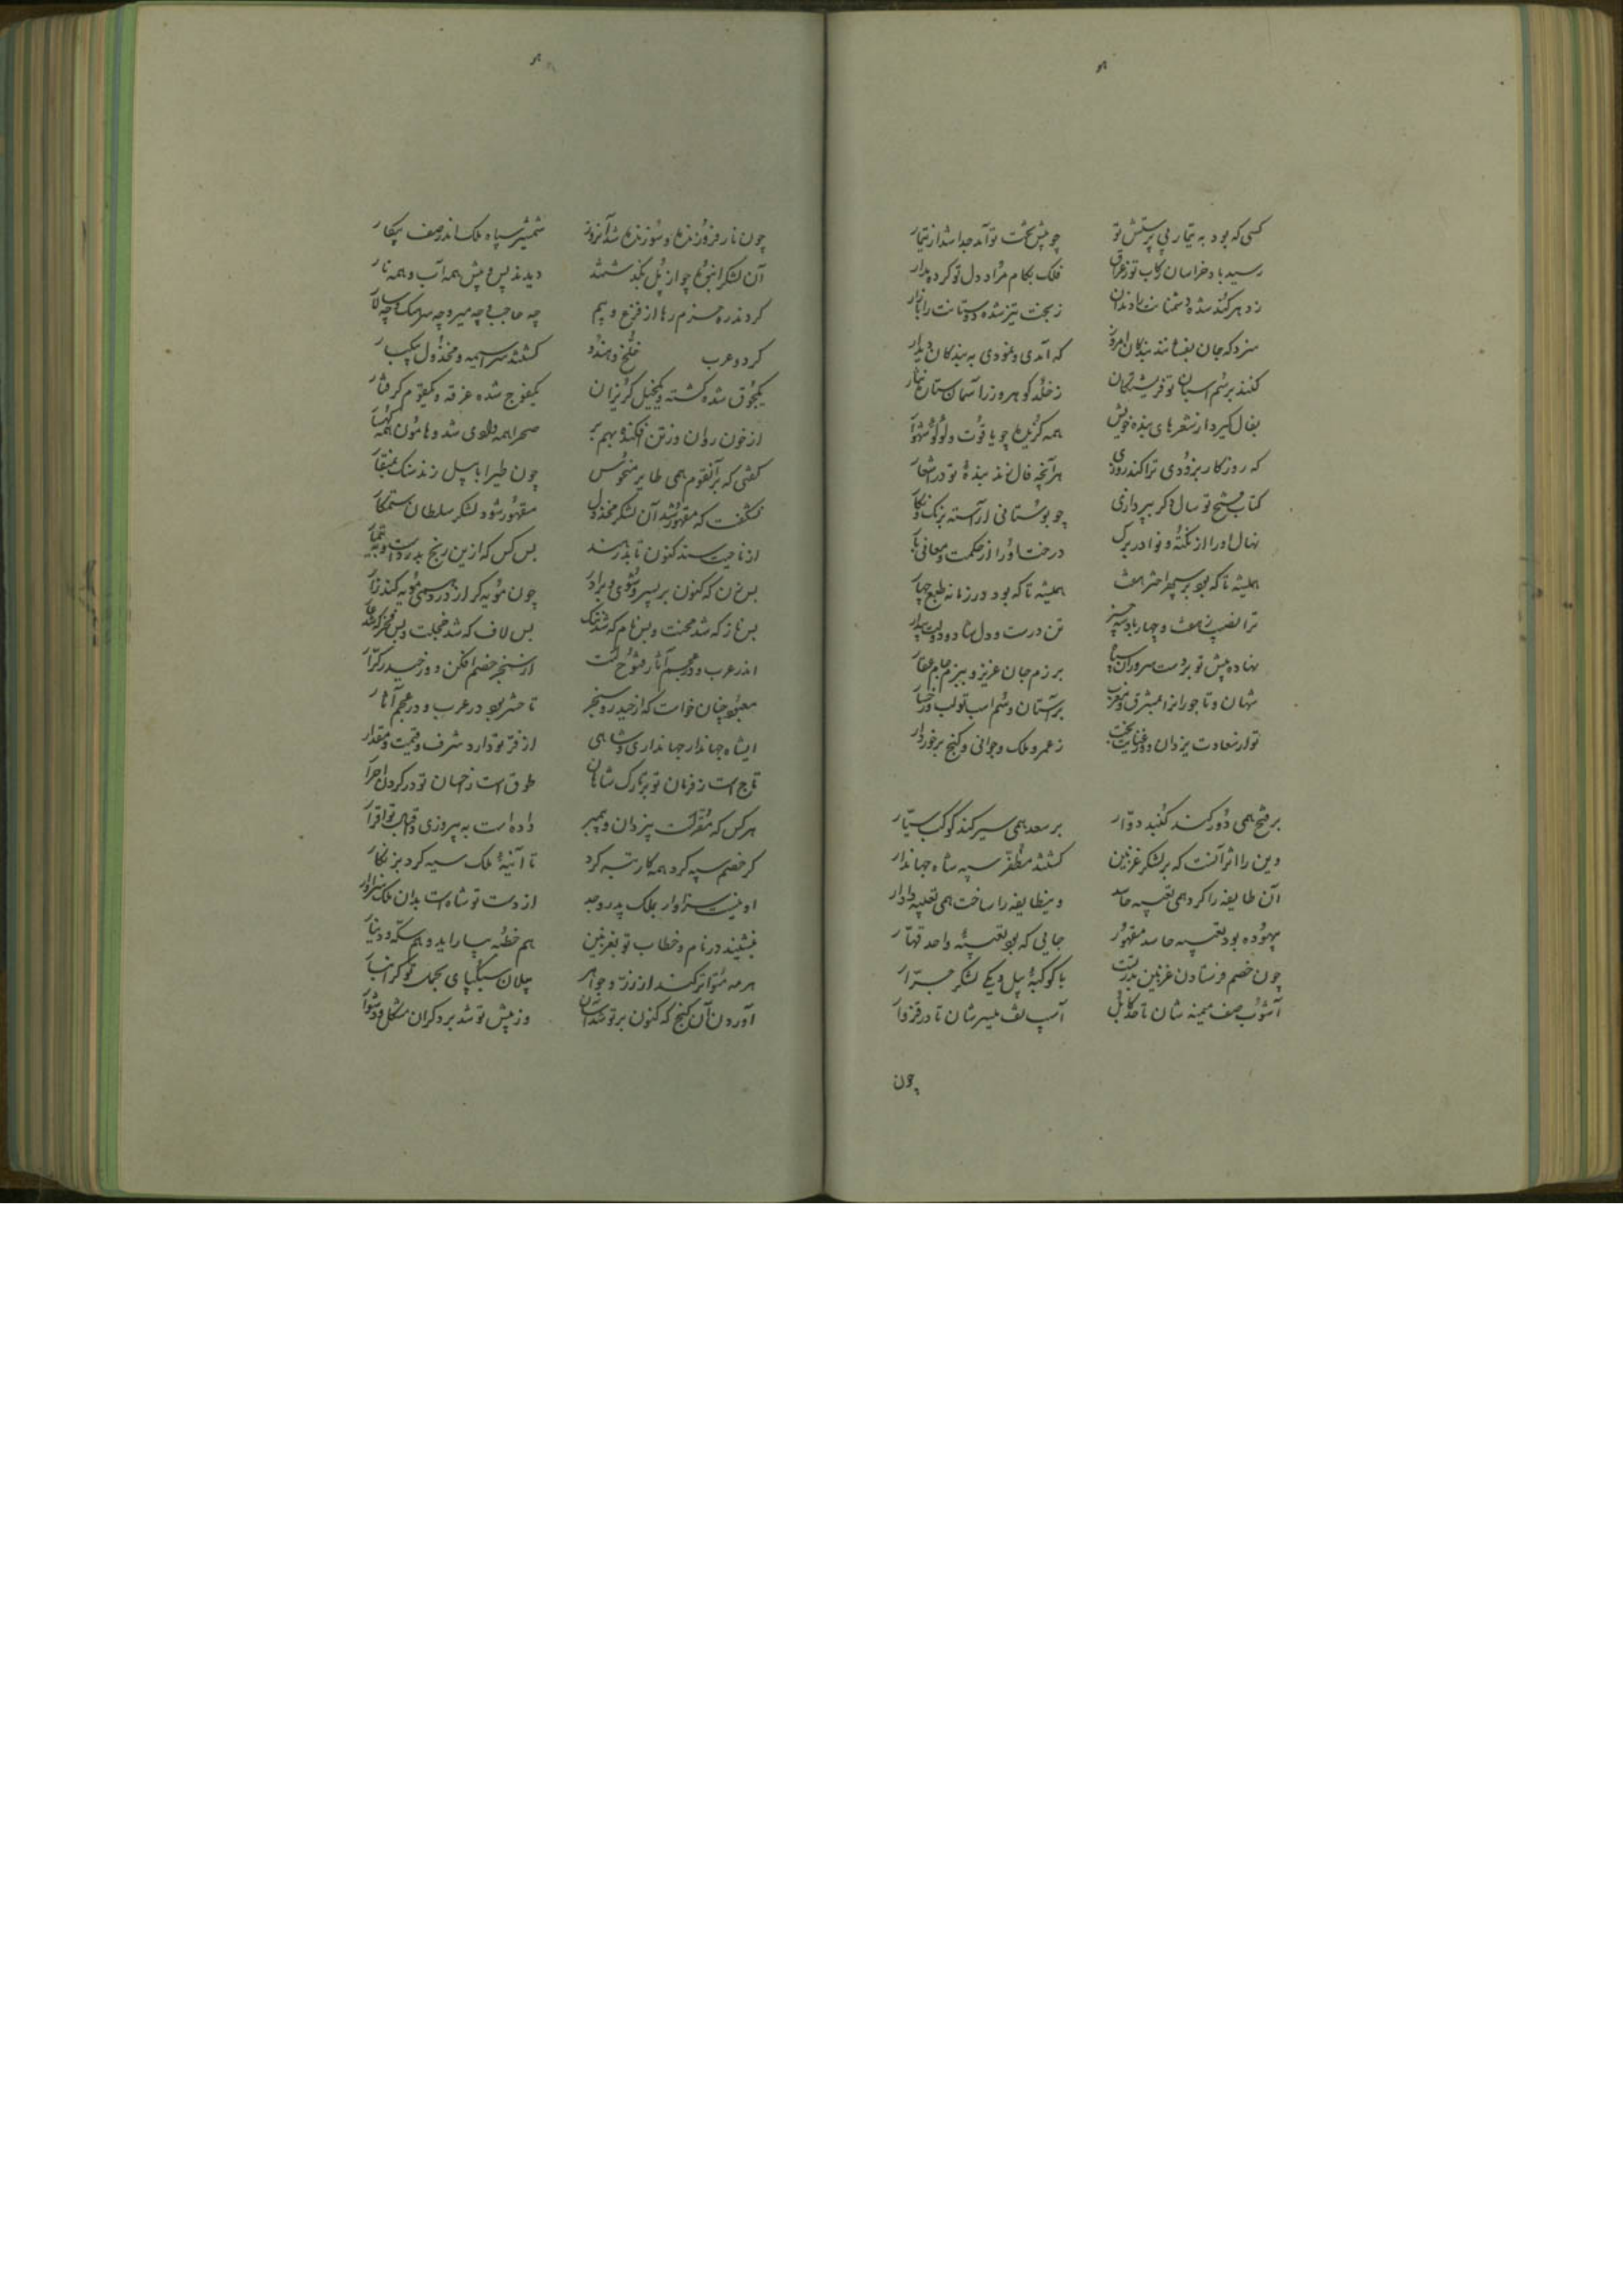 کسی که بود به تیمار بی پرستش تو چو پیش تخت تو آمد جدا شد از تیمار
رسید باد خراسان رکاب تو ز عراق فلک بکام مراد دل تو کرد پدار
ز دهر کند شده دشمنانت را دندان ز بخت تیز شده دوستانت را بازار
سزد که جان بفشانند بندکان امروز که آمدی و نمودی به بندکان دیدار
کنند بر سم اسبان تو فریشتکان ز خلد کوهر وز آسمان ستاره نثار
بفال کیرد از شعرهای بنده خویش همه کزیده چو یاقوت و لولو شهوار
که روزکار بزودی ترا کند روزی هر آنچه فال زند بنده تو در اشعار
کتاب فتح تو سال دکر بپردازی چو بوستانی آراسته برنک و نکار
نهال او را از نکته و نوادر برک درخت او را از حکمت و معانی بار
همیشه تا که بود بر سپهر اختر هفت همیشه تا که بود در زمانه طبع چهار
ترا نصیب ز هفت و چهار باد سه چیز تن درست و دل شاد و دولت بیدار
نهاده پیش تو بر دست سروران سپاه برزم جان عزیز و ببزم جام عقار
شهان و تاجوران را بمشرق و مغرب بر آستان و سم اسب تو لب و رخسار
تو از سعادت یزدان و عنایت بخت ز عمر و ملک و جوانی و کنج برخوردار
بر فتح همی دور کند کنبد دوار بر سعد همی سیر کند کوکب سیار
وین را اثر آنست که بر لشکر غزنین کشتند مظفر سپه شاه جهاندار
آن طایفه را کرد همی تعبیه حاسد وینطایفه را ساخت همی تعبیه دادار
بیهوده بود تعبیه حاسد مقهور جایی که بود تعبیه واحد قهار
چون خصم فرستاد ز غزنین بدر بست با کوکبه پیل و یکی لشکر جرار
آشوب صف میمنه شان تا حد کابل آسیب لف میسره شان تا در قزدار
چون
چون نار فروزنده و سوزنده شد آنروز شمشیر سپاه ملک اندر صف پیکار
آن لشکر انبوه چو از پل بکذشتند دیدند پس و پیش همه آب و همه نار
کردند ره حزم رها از فزع و بیم چه حاجب و چه میر و چه سرهنک و چه سالار
کرد و عرب خلخ و هندو کشتند سراسیمه و مخذول بیکبار
یکجوق شده کشته و یکخیل کریزان یکفوج شده غرقه و یکقوم کرفتار
از خون روان وز تن افکنده بهم بر صحرا همه وادی شد و هامون همه کهسار
کفتی که بر آنقوم همی طایر منحوس چون طیر ابابیل زند سنک بمنقار
نشکفت که مقهور شد آن لشکر مخذول مقهور شود لشکر سلطان ستمکار
بس کس که ازین رنج بدرد است و به تیمار
بس زن که کنون بر پسر و شوی و برادر چون مویه کر از درد همی مویه کند زار
بس ناز که شد محنت و بس نام که شد ننک بس لاف که شد خجلت و بس فخر که شد عار
اندر عرب و در عجم آثار فتوح است از سنجر خصم افکن و وز حیدر کرار
معبود چنان خواست که از حیدر و سنجر تا حشر بود در عرب و در عجم آثار
ایشاه جهاندار جهانداری و شاهی از فر تو دارد شرف و قیمت و مقدار
تاج است ز فرمان تو بر تارک شاهان طوق است ز احسان تو در کردن احرار
هر کس که مقر است بیزدان و پیمبر داده است به پیروزی و اقبال تو اقرار
کر خصم سپه کرد همه کار تبه کرد تا آینه ملک سیه کرد بزنکار
او نیست سزاوار بملک پدر و جد از دست تو شاه است بدان ملک سزاوار
بنشیند در نام و خطاب تو بغزنین هم خطبه بیاراید و هم سکه و دینار
هر مه متواتر کند از زر و جواهر پیلان سبکپای بحمل تو کرانبار
آوردن آن کنج که کنون بر تو شد آسان وز پیش تو شد بر دکران مشکل و دشوار